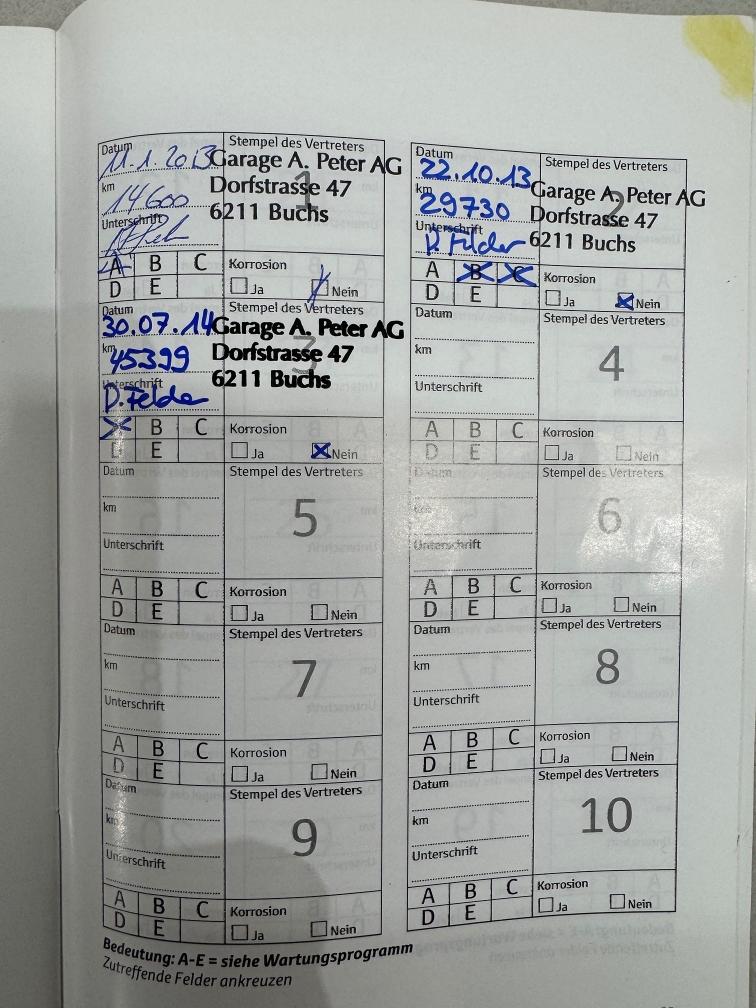 Datum
11.1.2013
km
14600
Unterschrift
Stempel des Vertreters
Garage A. Peter AG
Dorfstrasse 47
6211 Buchs
1
A B C
D E
Korrosion
Ja Nein
Datum
22.10.13
km
29730
Unterschrift
D. Felder
Stempel des Vertreters
Garage A. Peter AG
Dorfstrasse 47
6211 Buchs
2
A B C
D E
Korrosion
Ja Nein
Datum
30.07.14
km
45399
Unterschrift
D. Felder
Stempel des Vertreters
Garage A. Peter AG
Dorfstrasse 47
6211 Buchs
3
A B C
D E
Korrosion
Ja Nein
Datum
km
Unterschrift
Stempel des Vertreters
4
A B C
D E
Korrosion
Ja Nein
Datum
km
Unterschrift
Stempel des Vertreters
5
A B C
D E
Korrosion
Ja Nein
Datum
km
Unterschrift
Stempel des Vertreters
6
A B C
D E
Korrosion
Ja Nein
Datum
km
Unterschrift
Stempel des Vertreters
7
A B C
D E
Korrosion
Ja Nein
Datum
km
Unterschrift
Stempel des Vertreters
8
A B C
D E
Korrosion
Ja Nein
Datum
km
Unterschrift
Stempel des Vertreters
9
A B C
D E
Korrosion
Ja Nein
Datum
km
Unterschrift
Stempel des Vertreters
10
A B C
D E
Korrosion
Ja Nein
Bedeutung: A-E = siehe Wartungsprogramm
Zutreffende Felder ankreuzen